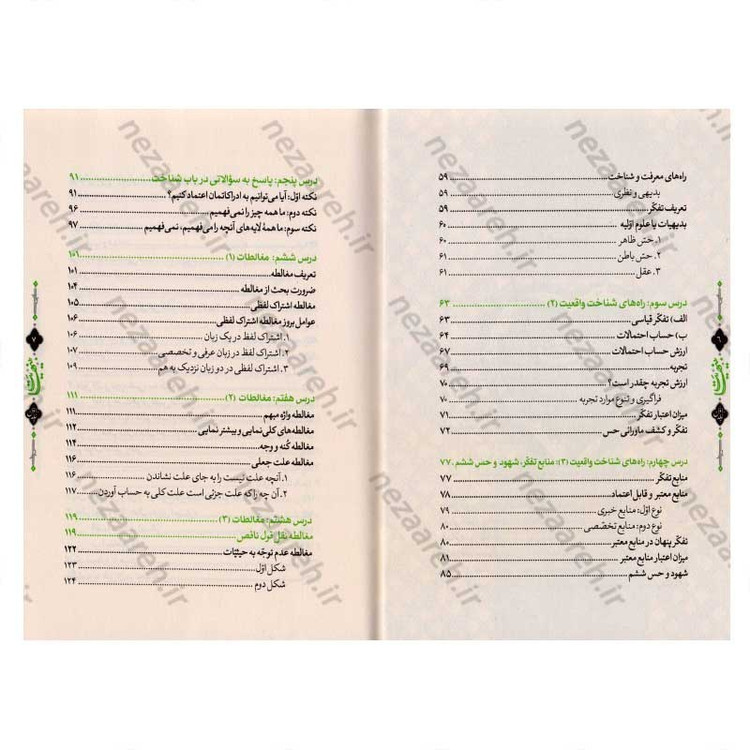 راه‌های معرفت و شناخت ........ ۵۹
بدیهی و نظری ........ ۵۹
تعریف تفکّر ........ ۵۹
بدیهیات یا علوم اوّلیه ........ ۶۰
۱. حسّ ظاهر ........ ۶۰
۲. حسّ باطن ........ ۶۱
۳. عقل ........ ۶۱
درس سوم: راه‌های شناخت واقعیت (۲) ........ ۶۳
الف) تفکّر قیاسی ........ ۶۳
ب) حساب احتمالات ........ ۶۴
ارزش حساب احتمالات ........ ۶۷
تجربه ........ ۶۹
ارزش تجربه چقدر است؟ ........ ۷۰
فراگیری و تنوع موارد تجربه ........ ۷۰
میزان اعتبار تفکّر ........ ۷۱
تفکّر و کشف ماورائی حس ........ ۷۲
درس چهارم: راه‌های شناخت واقعیت (۳): منابع تفکّر، شهود و حس ششم . ۷۷
منابع تفکّر ........ ۷۷
منابع معتبر و قابل اعتماد ........ ۷۸
نوع اوّل: منابع خبری ........ ۷۹
نوع دوم: منابع تخصّصی ........ ۸۰
تفکّر پنهان در منابع معتبر ........ ۸۰
میزان اعتبار منابع معتبر ........ ۸۱
شهود و حس ششم ........ ۸۵
۶
درس پنجم: پاسخ به سؤالاتی در باب شناخت ........ ۹۱
نکته اوّل: آیا می‌توانیم به ادراکاتمان اعتماد کنیم؟ ........ ۹۱
نکته دوم: ما همه چیز را نمی‌فهمیم ........ ۹۶
نکته سوم: ما همۀ لایه‌های آنچه را می‌فهمیم، نمی‌فهمیم ........ ۹۷
درس ششم: مغالطات (۱) ........ ۱۰۱
تعریف مغالطه ........ ۱۰۱
ضرورت بحث از مغالطه ........ ۱۰۴
مغالطه اشتراک لفظی ........ ۱۰۵
عوامل بروز مغالطه اشتراک لفظی ........ ۱۰۶
۱. اشتراک لفظ در یک زبان ........ ۱۰۶
۲. اشتراک لفظ در زبان عرفی و تخصصی ........ ۱۰۷
۳. اشتراک لفظی در دو زبان نزدیک به هم ........ ۱۰۹
درس هفتم: مغالطات (۲) ........ ۱۱۱
مغالطه واژه مبهم ........ ۱۱۱
مغالطه‌های کلی‌نمایی و بیشترنمایی ........ ۱۱۲
مغالطه کُنه و وجه ........ ۱۱۴
مغالطه علت جعلی ........ ۱۱۶
۱. آنچه علت نیست را به جای علت نشاندن ........ ۱۱۶
۲. آن چه را که علت جزئی است علت کلی به حساب آوردن ........ ۱۱۷
درس هشتم: مغالطات (۳) ........ ۱۱۹
مغالطه نقل قول ناقص ........ ۱۱۹
مغالطه عدم توجّه به حیثیّات ........ ۱۲۲
شکل اوّل ........ ۱۲۳
شکل دوم ........ ۱۲۴
۷
nezaareh.ir